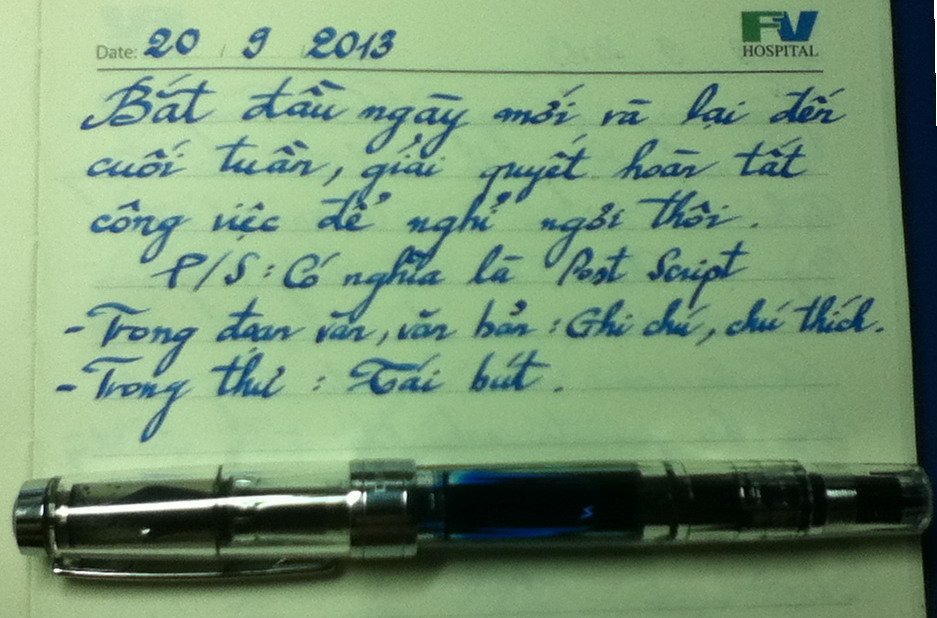 FV
HOSPITAL
Date: 20 / 9 / 2013
Bắt đầu ngày mới và lại đến
cuối tuần, giải quyết hoàn tất
công việc để nghỉ ngơi thôi.
P/S: Có nghĩa là Post Script
- Trong đoạn văn, văn bản: Ghi chú, chú thích.
- Trong thư: Tái bút.